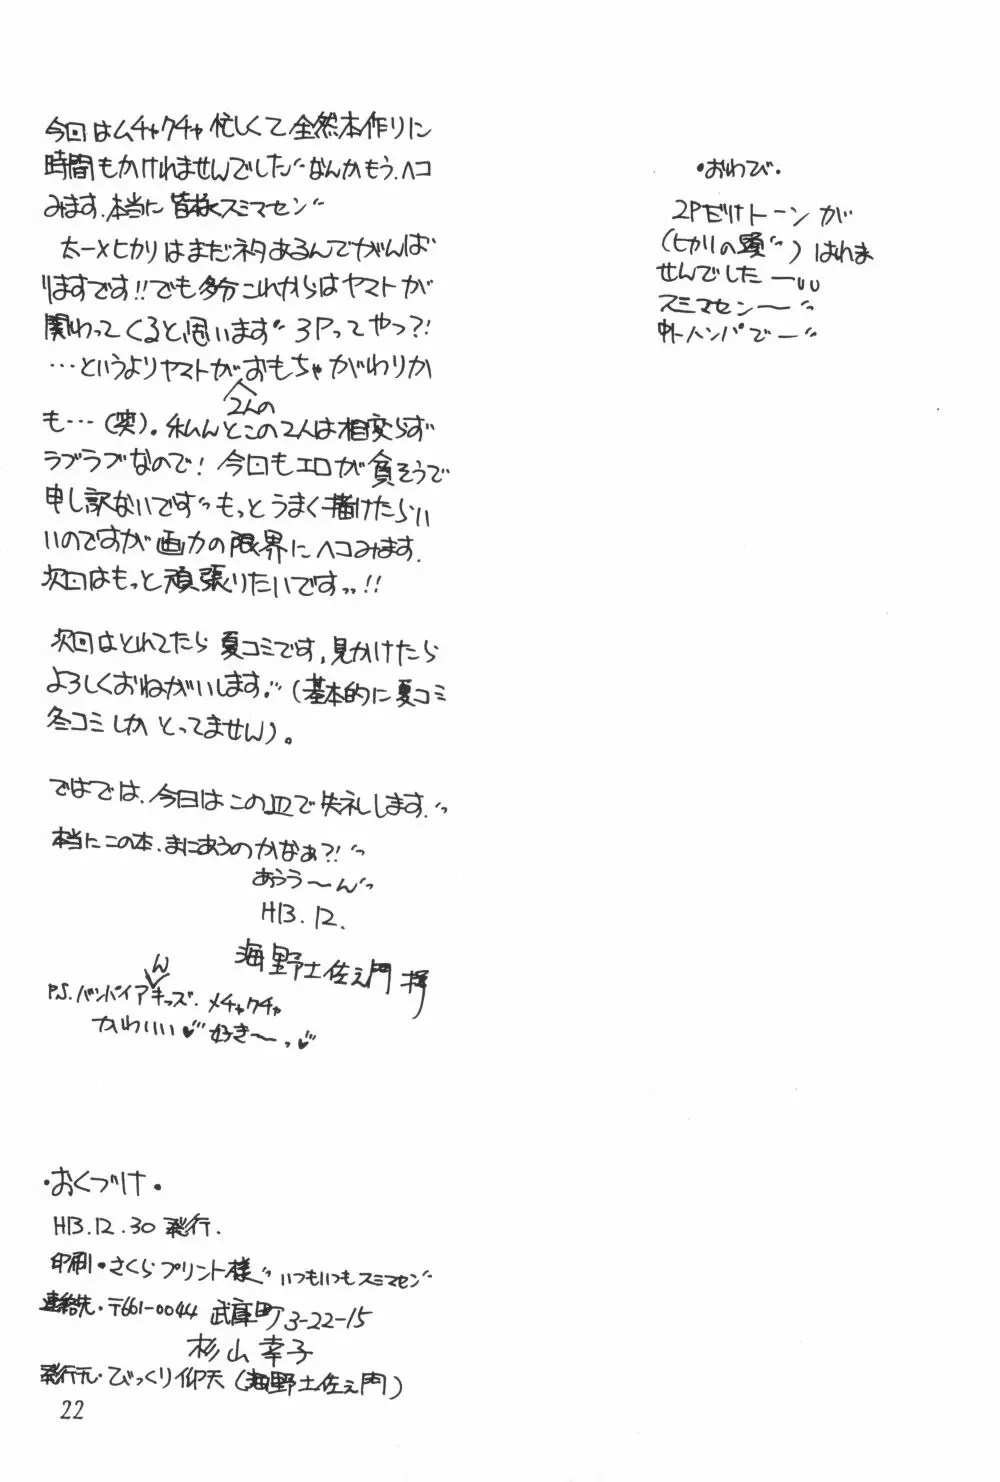 今回はムチャクチャ忙しくて全然本作りに
時間もかけれませんでした〃なんかもう、ヘコ
みます、本当に皆様スミマセン〃
太一×ヒカリはまだネタあるんでがんば
りますです!!でも多分これからはヤマトが
関わってくると思います〃3Pってやつ?!
…というよりヤマトがおもちゃがわりか
も…(笑)。私んとこの2人は相変らず
2人の
ラブラブなので!今回もエロが貧そうで
申し訳ないです〃もっとうまく描けたらい
いのですが画力の限界にヘコみます.
次回はもっと頑張りたいですっ!!
次回はとれてたら夏コミです,見かけたら
よろしくおねがいします〃(基本的に夏コミ
冬コミしかとってません)。
ではでは、今日はこの辺で失礼します〃
本当にこの本、まにあうのかなぁ?!〃
あうう〜ん〃
H13.12.
海野土佐之門 拝
P.S.バンパイアンキッズ.メチャクチャ
かわいい♥〃好き〜っ♥
・おわび・
2Pだけトーンが
(ヒカリの頭〃)はれま
せんでしたー
スミマセン〜〃
中トハンパでー〃
・おくづけ・
H13.12.30発行.
印刷・さくらプリント様〃いつもいつもスミマセン〃
連絡先・〒661-0044 武庫町3-22-15
杉山幸子
発行元・びっくり仰天(海野土佐之門)
22